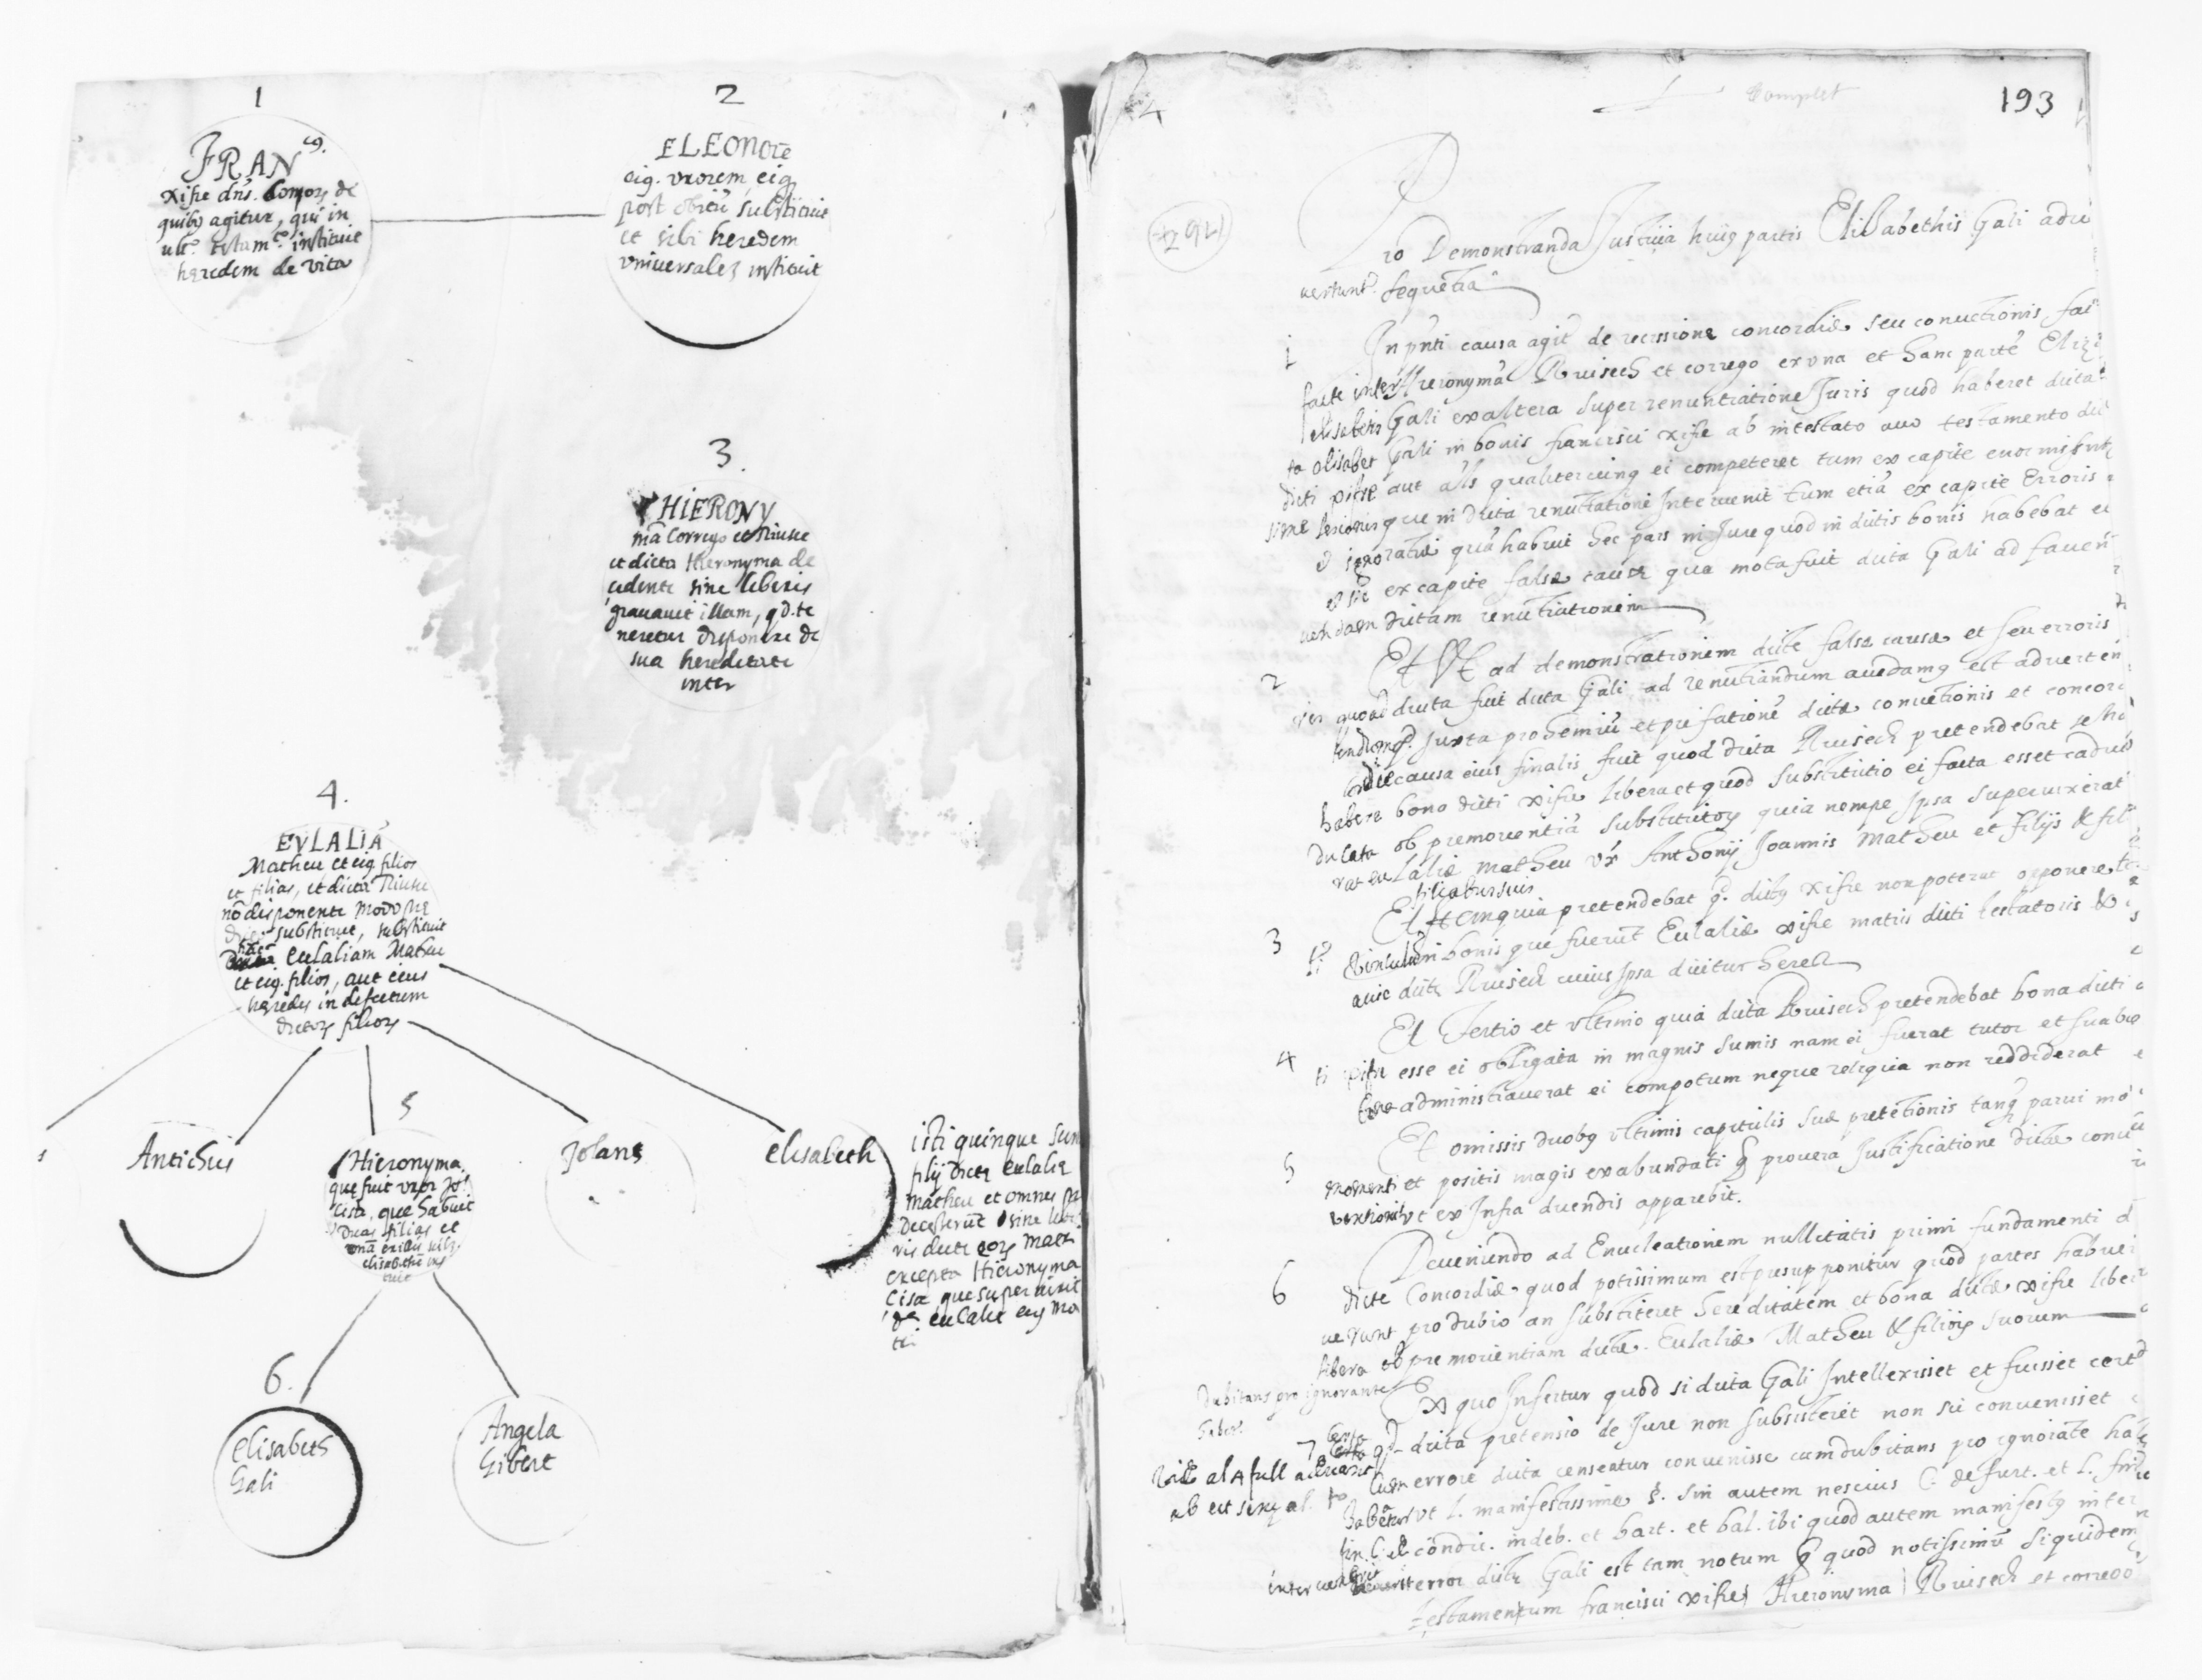 1
FRAN cus.
xifre dns. Compos de
quibus agitur, qui in
ult.º testam.to instituit
heredem de vita
2
ELEONORE
eig. uxorem, eiq
post obitū substituit
et sibi heredem
universalē instituit
3.
HIERONY
mā Corrego et Riusec
et dicta Hieronyma de
cedente sine liberis
gravavit illam, qd. te
neretur disponere de
sua hereditate
inter
4.
EVLALIĀ
Matheu et eig filios
et filias, et dicta Riusec
nō disponente modo
substituit, substituit
Eulaliam Matheu
et eig. filios, aut eius
heredes in defectum
dictoꝝ filioꝝ
Antichus
5
Hieronyma,
que fuit uxor Jo!
Cisa, que habuit
Duas filias et
unā
elisabethē
Jolans
elisabeth
isti quinque sun
filij dicte eulalie
Matheu et omnes
decesserūt sine libe
ris
excepta Hieronyma
Cisa que supervixit
de eulalie eig Ma
tri
6.
Elisabeth
Gali
Angela
Gibert
193
complet
Pro Demonstranda Justitia huig partis Elisabethis Gali adu
sequētia
1 In pn̄ti causa agit de recissione concordie seu convētionis fac
facte inter Hieronymā Ruisech et corrego ex una et hanc partē Eliz
elisabetis Gali ex altera super renuntiatione Juris quod haberet dicta
ta elisabet Gali in bonis francisci xifre ab intestato aut testamento dic
dicti xifre aut als qualitercunq ei competeret tum ex capite enormiss
sime lesionis que in dicta renūtiatione Intervenit tum etiā ex capite Erroris
et ignoratie quā habuit hec pars in Jure quod in dictis bonis habebat et
ex capite false cause qua mota fuit dicta Gali ad faven
dictam renūtiationem
2 Et Vt ad demonstrationem dicte false cause et seu erroris
quo adducta fuit dicta Gali ad renūtiandum accedamq est adverten
Juxta prohemiū et prefationē dicte convētionis et concor
causa eius finalis fuit quod dicta Ruisech pretendebat se ha
habere bona dicti xifre libera et quod substitutio ei facta esset cadu
ducata ob premorientiā substitutoꝝ quia nempe Ipsa supervixerat
eulalie matheu Vx Anthonij Joannis Matheu et filijs & fil
filiabus suis
3 Et Item quia pretendebat q. dictus xifre non poterat opponere
vinculum in bonis que fuerūt Eulalie xifre matris dicti testatoris &
avie dicte Ruisech cuius Ipsa dicitur heres
4 Et Tertio et Vltimo quia dicta Ruisech pretendebat bona dicti
xifre esse ei obligata in magnis sumis nam ei fuerat tutor et sua bo
administraverat ei compotum neque reliqua non reddiderat
5 Et omissis duobq Vltimis capitulis sue pretētionis tanq parvi mo
momenti et positis magis exabundati q pro vera Justificatione dicte conve
ut ex Infra dicendis apparebit.
6 Deveniendo ad Enucleationem nullitatis primi fundamenti d
dicte Concordie quod potissimum est presupponitur quod partes habue
verunt pro dubio an subsisteret hereditatem et bona dicte xifre liber
libera ob premorientiam dicte Eulalie Matheu & filioꝝ suorum
Dubitans pro ignorante
haber.
7 Ex quo Infertur quod si dicta Gali Intellexisset et fuisset cert
certa qd dicta pretensio de Jure non subsisteret non sic convenisset
al A full
cum errore dicta censeatur convenisse cum dubitans pro ignorāte ha
habeatur Vt l. manifestissime §. Sin autem nescius C. de furt. et l. fin
fin. C. de condic. indeb. et bart. et bal. ibi quod autem manifestq inter
error dicte Gali est tam notum q quod notissimū siquidem
testamentum francisci xifre Hieronyma Ruisech et corrego